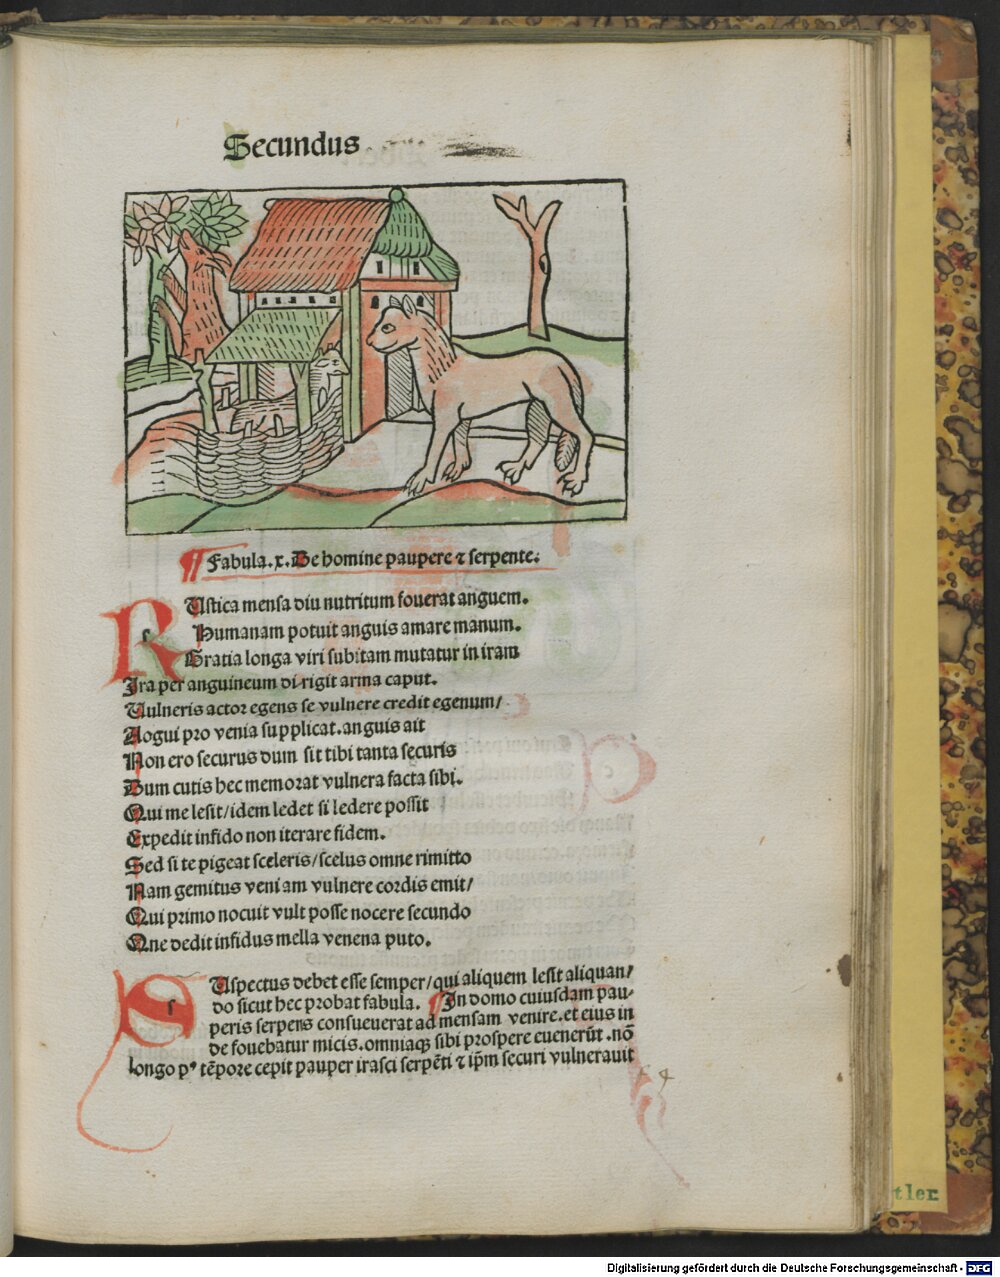 Secundus
¶ Fabula.x. De homine paupere ⁊ serpente.
RUstica mensa diu nutritum fouerat anguem.
Humanam potuit anguis amare manum.
Gratia longa viri subitam mutatur in iram
Ira per anguineum dirigit arma caput.
Uulneris actor egens se vulnere credit egenum/
Aogui pro venia supplicat. anguis ait
Non ero securus dum sit tibi tanta securis
Dum cutis hec memorat vulnera facta sibi.
Qui me lesit/idem ledet si ledere possit
Expedit infido non iterare fidem.
Sed si te pigeat sceleris/scelus omne rimitto
Nam gemitus veniam vulnere cordis emit/
Qui primo nocuit vult posse nocere secundo
Qne dedit infidus mella venena puto.
SUspectus debet esse semper/qui aliquem lesit aliquan/
do sicut hec probat fabula. ¶ In domo cuiusdam pau-
peris serpens consueuerat ad mensam venire. et eius in
de fouebatur micis. omniaqꝫ sibi prospere euenerūt. nō
longo pꝰ tēpore cepit pauper irasci serpēti ⁊ ip̄m securi vulnerauit
tler
Digitalisierung gefördert durch die Deutsche Forschungsgemeinschaft - DFG